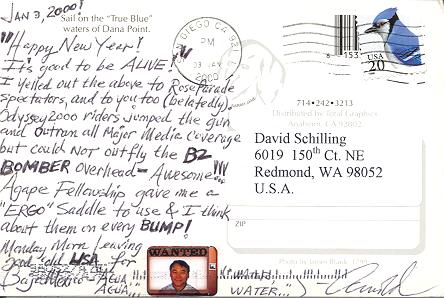 JAN 3, 2000!
Sail on the "True Blue"
waters of Dana Point.
"Happy New Year!
It's good to be ALIVE!"
I yelled out the above to Rose Parade
spectators, and to you too (belatedly)
Odyssey 2000 riders jumped the gun
and outran all Major Media coverage
but could NOT outfly the B2
BOMBER overhead - Awesome!!!
Agape Fellowship gave me a
"ERGO" Saddle to use & I think
about them on every BUMP!
Monday Morn leaving
good old USA for
AGUA
AGUA
WANTED
WATER...
DIEGO CA 921
PM
03 JAN
2000
USA
20
714•242•3213
Distributed by Total Graphics
Anaheim, CA 92802
David Schilling
6019 150th Ct. NE
Redmond, WA 98052
U.S.A.
ZIP